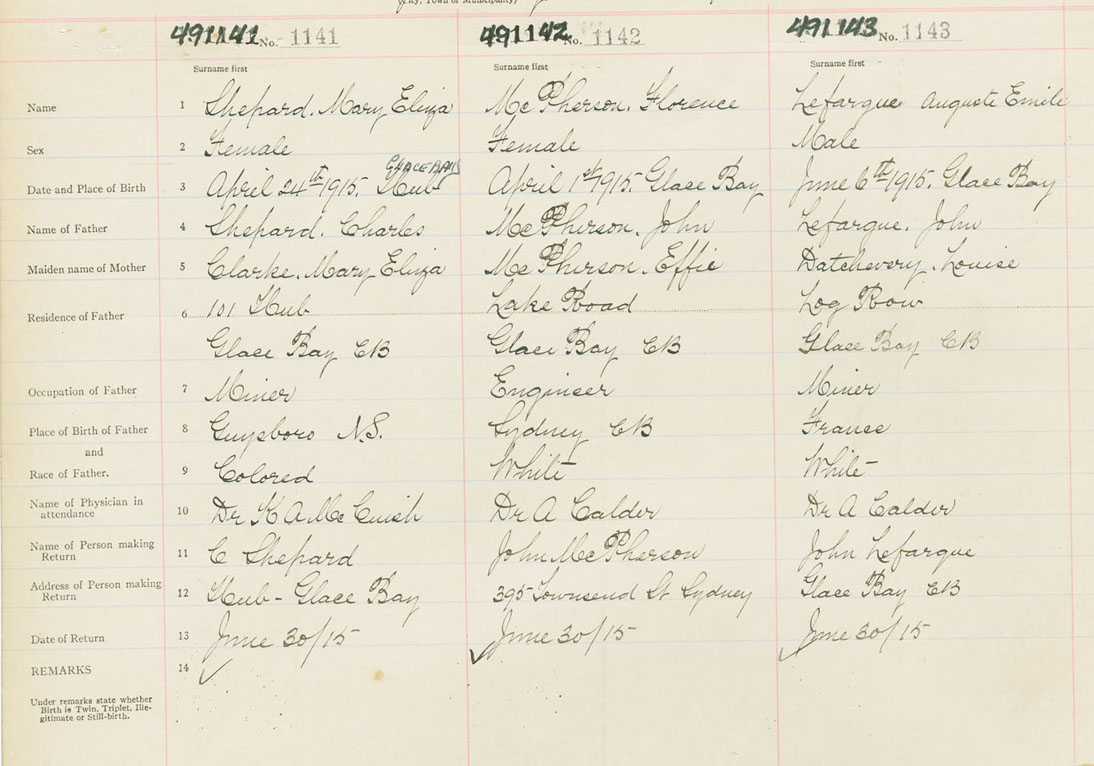 (City, Town or Municipality)
491141 No. 1141 491142 No. 1142 491143 No. 1143
Surname first Surname first Surname first
Name 1 Shepard. Mary Eliza McPherson. Florence Lefargue Auguste Emile
Sex 2 Female Female Male
GLACE BAY
Date and Place of Birth 3 April 24th 1915. Hub April 1st 1915. Glace Bay June 6th 1915. Glace Bay
Name of Father 4 Shepard. Charles McPherson. John Lefargue. John
Maiden name of Mother 5 Clarke. Mary Eliza McPherson. Effie Datchevery. Louise
Residence of Father 6 101 Hub Lake Road Log Row
Glace Bay CB Glace Bay CB Glace Bay CB
Occupation of Father 7 Miner Engineer Miner
Place of Birth of Father 8 Guysboro N.S. Sydney CB France
and
Race of Father. 9 Colored White White
Name of Physician in
attendance 10 Dr K A McCuish Dr A Calder Dr A Calder
Name of Person making
Return 11 C Shepard John McPherson John Lefargue
Address of Person making
Return 12 Hub - Glace Bay 395 Townsend St Sydney Glace Bay CB
Date of Return 13 June 30/15 June 30/15 June 30/15
REMARKS 14
Under remarks state whether
Birth is Twin, Triplet, Ille-
gitimate or Still-birth.